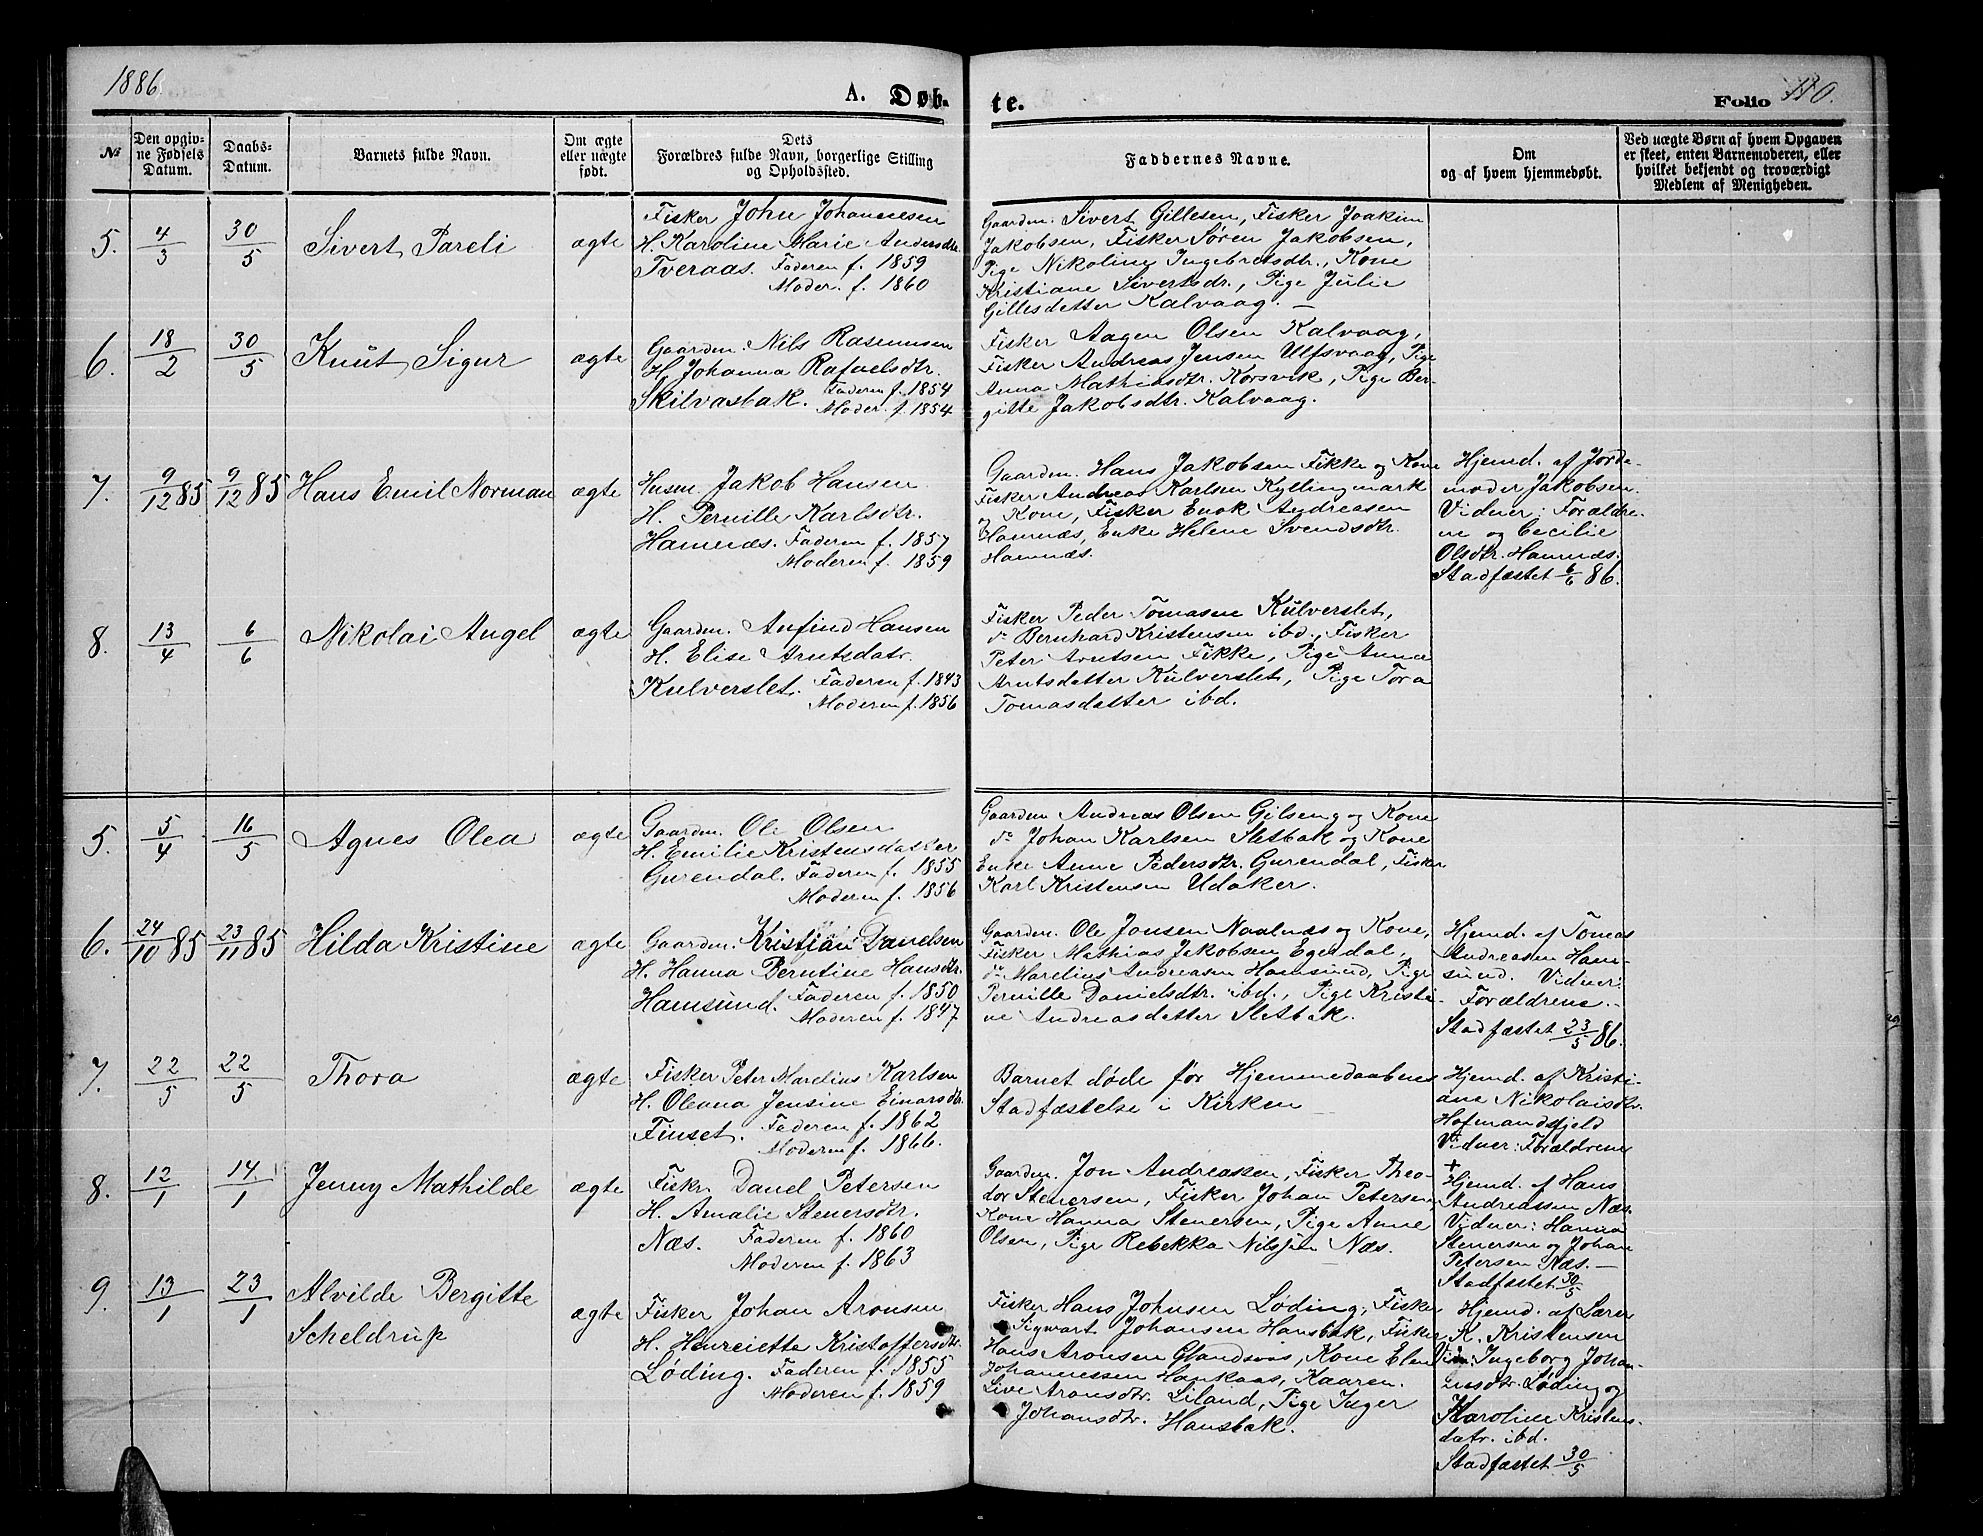 1886.
A. Døb-
te.
Folio 110.
No
Den opgiv-
ne Fødsels
Datum.
Daabs-
Datum.
Barnets fulde Navn.
Om ægte
eller uægte
født.
Dets
Forældres fulde Navn, borgerlige Stilling
og Opholdssted.
Faddernes Navne.
Om
og af hvem hjemmedøbt.
Ved uægte Børn af hvem Opgaven
er skeet, enten Barnemoderen, eller
hvilket bekjendt og troværdigt
Medlem af Menigheden.
5. 4/3 30/5 Sivert Pareli ægte
Fisker John Johannesen
H. Karoline Marie Andersdtr.
Tveraas. Faderen f. 1859
Moder. f. 1860
Gaardm. Sivert Gillesen, Fisker Joakim
Jakobsen, Fisker Søren Jakobsen,
Pige Nikoline Ingebretsdtr., Kone
Kristiane Sivertsdr., Pige Julie
Gillesdatter Kalvaag. —
6. 18/2 30/5 Knut Sigur ægte
Gaardm. Nils Rasmussen
H. Johanna Rafaelsdtr.
Skilvasbak. Faderen f. 1854
Moder. f. 1854
Fisker Aagen Olsen Kalvaag,
Fisker Andreas Jensen Ulfsvaag, Pige
Anna Mathiasdtr. Korsvik, Pige Ber-
gitte Jakobsdtr. Kalvaag.
7. 9/12 85 9/12 85 Hans Emil Norman ægte
Husm. Jakob Hansen
H. Pernille Karlsdtr.
Hamnæs. Faderen f. 1857
Moderen f. 1859
Gaardm. Hans Jakobsen Fikke og Kone
Fisker Andreas Karlsen Kyllingmark
Kone, Fisker Enok Andreasen
Hamnæs, Enke Helene Svendsdtr.
Hamnæs.
Hjemd. af Jorde-
moder Jakobsen.
Vidner: Forældre-
ne og Cecilie
Olsdtr. Hamnæs.
Stadfæstet 6/6 86.
8. 13/4 6/6 Nikolai Angel ægte
Gaardm. Anfind Hansen
H. Elise Arntzdatr.
Kulverslet. Faderen f. 1843
Moderen f. 1856
Fisker Peder Tomasen Kulverslet,
do Bernhard Kristensen ibd., Fisker
Peter Arntsen Fikke, Pige Anna
Arntsdatter Kulverslet, Pige Tora
Tomasdatter ibd.
5. 5/4 16/5 Agnes Olea ægte
Gaardm. Ole Olsen
H. Emilie Kristensdatter
Gurendal. Faderen f. 1855
Moderen f. 1856
Gaardm Andreas Olsen Gilseng og Kone
do Johan Karlsen Sletbak og Kone
Enke Anne Pedersdtr. Gurendal, Fisker
Karl Kristensen Udaker.
6. 24/10 85 23/11 85 Hilda Kristine ægte
Gaardm. Kristian Danelsen
H. Hanna Berntine Hansdtr.
Hamsund. Faderen f. 1850
Moderen f. 1847
Gaardm. Ole Jonsen Naalnæs og Kone,
Fisker Mathias Jakobsen Egedal,
do Marelius Andreasen Hamsund, Pige
Pernille Danielsdtr. ibd., Pige Kristi-
ne Andreasdatter Sletbak.
Hjemd. af Tomas
Andreasen Ham-
sund. Vidner:
Forældrene.
Stadfæstet 23/5 86.
7. 22/5 22/5 Thora ægte
Fisker Peter Marelius Karlsen
H. Oleana Jensine Einarsdtr.
Finset. Faderen f. 1862
Moderen f. 1866.
Barnet døde før Hjemmedaabens
Stadfæstelse i Kirken
Hjemd. af Kristi-
ane Nikolaisdtr.
Hofmandsfjeld
Vidner: Forældrene
8. 12/1 14/1 Jenny Mathilde ægte
Fiskr. Danel Petersen
H. Amalie Stenersdtr.
Næs. Faderen f. 1860
Moderen f. 1863
Gaardm. Jon Andreassen, Fisker Theo-
dor Stenersen, Fisker Johan Petersen,
Kone Hanna Stenersen, Pige Anne
Olsen, Pige Rebekka Nilssen Næs.
+
Hjemd. af Hans
Andreassen Næs.
Vidner: Hanna
Stenersen og Johan
Petersen Næs. —
Stadfæstet 30/5
9. 13/1 23/1 Alvilde Bergitte
Scheldrup ægte
Fisker Johan Aronsen
H. Henreiette Kristoffersdtr.
Løding. Faderen f. 1855
Moderen f. 1859
Fisker Hans Johnsen Løding, Fisker
Sigwart Johansen Hansbak, Fisker
Hans Aronsen Glandsvas, Kone Elen
Johannessen Haukaas, Kaaren.
Live Aronsdtr. Liland, Pige Inger
Johansdtr. Hansbak.
Hjemd. af Lærer
K. Kristensen
Vidn: Ingeborg Johan-
nesdtr. Løding og
Karoline Kristens-
datr. ibd.
Stadfæstet 30/5